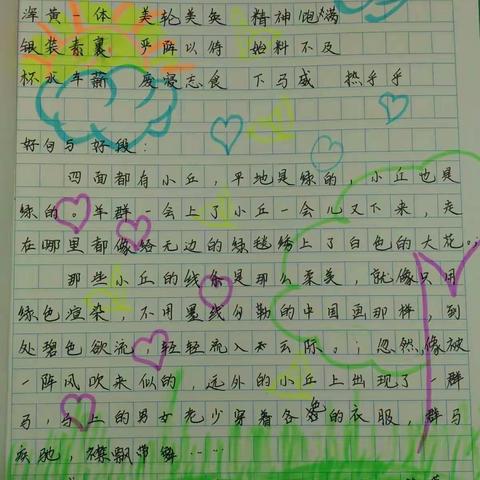 浑黄一体 美轮美奂 精神饱满
银装素裹 严阵以待 始料不及
杯水车薪 废寝忘食 下马威 热乎乎
好句与好段：
四面都有小丘，平地是绿的，小丘也是
绿的。羊群一会上了小丘一会儿又下来，走
在哪里都像给无边的绿毯绣上了白色的大花。
那些小丘的线条是那么柔美，就像只用
绿色渲染，不用墨线勾勒的中国画那样，到
处碧色欲流，轻轻流入云际。；忽然，像被
一阵风吹来似的，远外的小丘上出现了一群
马，马上的男女老少穿着各色的衣服，群马
疾驰，襟飘带舞……